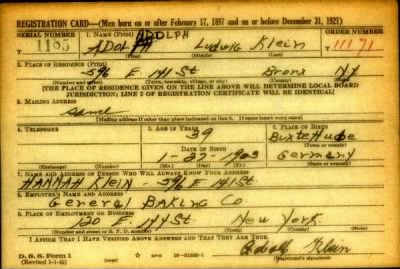 REGISTRATION CARD—(Men born on or after February 17, 1897 and on or before December 31, 1921)
SERIAL NUMBER 1. NAME (Print) ADOLPH ORDER NUMBER
1185 ADOLPH Ludwig Klein 11171
2. PLACE OF RESIDENCE (Print)
596 E 141 St Bronx NY
(Number and street) (Town, township, village, or city) (County) (State)
[THE PLACE OF RESIDENCE GIVEN ON THE LINE ABOVE WILL DETERMINE LOCAL BOARD
JURISDICTION; LINE 2 OF REGISTRATION CERTIFICATE WILL BE IDENTICAL]
3. MAILING ADDRESS
Same
[Mailing address if other than place indicated on line 2. If same insert word same]
4. TELEPHONE 5. AGE IN YEARS 6. PLACE OF BIRTH
39 Buxtehude
DATE OF BIRTH (Town or county)
27 - 1903 Germany
(Exchange) (Number) (Mo.) (Day) (Yr.) (State or country)
7. NAME AND ADDRESS OF PERSON WHO WILL ALWAYS KNOW YOUR ADDRESS
HANNAH Klein - 596 E 141 St.
8. EMPLOYER'S NAME AND ADDRESS
General BAKING Co
9. PLACE OF EMPLOYMENT OR BUSINESS
120 E. St New York
(Number and street or R. F. D. number) (Town) (County) (State)
I AFFIRM THAT I HAVE VERIFIED ABOVE ANSWERS AND THAT THEY ARE TRUE.
D. S. S. Form 1 Adolf Klein
(Revised 1-1-42) (over) 16—21630-1